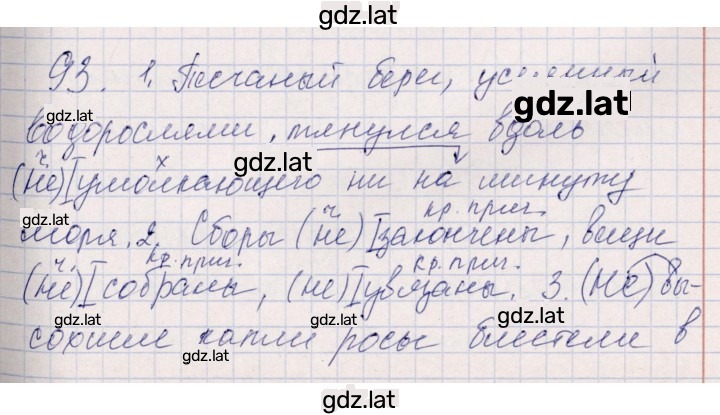 gdz.lat
gdz.lat gdz.lat
93. 1. Песчаный берег,
gdz.lat
водорослями, тянулся вдоль
gdz.lat
ч. х
(не)|умолкающего ни на минуту
gdz.lat
ч. кр. прич.
моря. 2. Сборы (не)|закончены, вещи
ч. кр. прич. кр. прич.
(не)|собраны, (не)|увязаны. 3. (Не)вы-
gdz.lat gdz.lat
сохшие капли росы блестели в
gdz.lat gdz.lat
gdz.lat